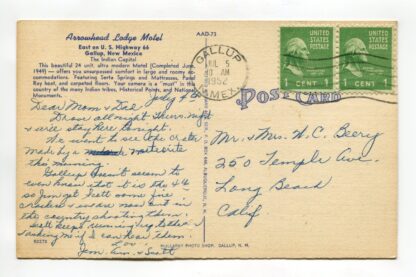 Arrowhead Lodge Motel
East on U. S. Highway 66
Gallup, New Mexico
The Indian Capital
This beautiful 24 unit, ultra modern Motel (Completed June 1949) — offers you unsurpassed comfort in large and roomy accommodations. Featuring Serta Springs and Mattresses, Panel Ray heat, and carpeted floors. Your "host" is in this country of the many Indian tribes, Historical Points, and National Monuments.
AAD-73
GALLUP
JUL 5
10 AM
1952
N. MEX
UNITED STATES POSTAGE
1 CENT 1
UNITED STATES POSTAGE
1 CENT 1
POST CARD
July 4th
Dear Mom & Dad
Drove all night Thurs. night
& were stay here tonight.
We want to see the crater
made by a meteorite
in the morning.
Gallup doesn't seem to
even know that it is the 4th
so Jim got
crackers & were now out in
the country shooting them.
We'll keep
Love
Jim, & Scott
Mr. & Mrs. W. C. Beery
250 Temple Ave.
Long Beach
Calif
MULLARKY PHOTO SHOP, GALLUP, N. M.